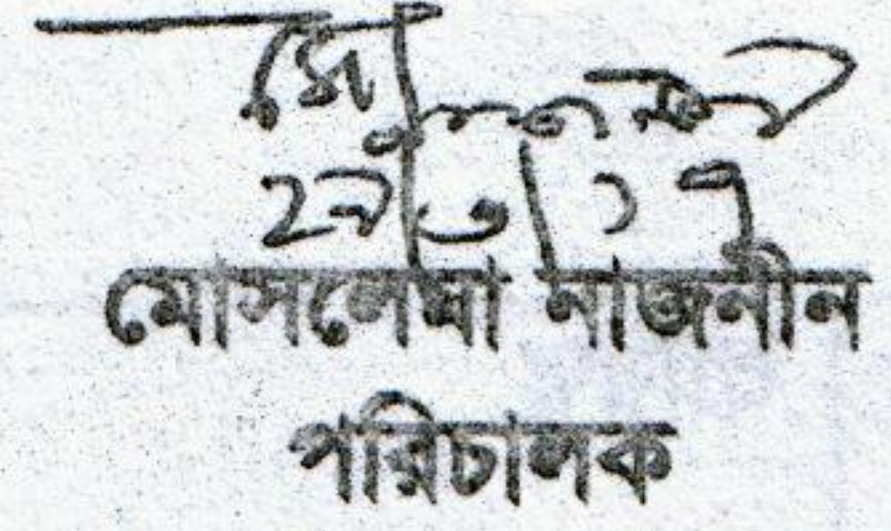 ২৯/৩/১৭
মোসলেমা নাজনীন
পরিচালক